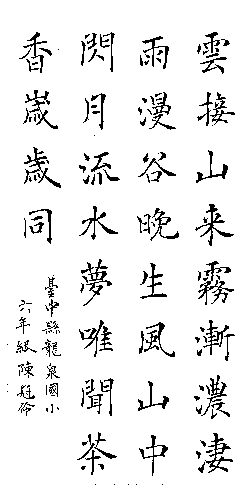 雲接山来霧漸濃淒
雨漫谷晚生風山中
閃月流水夢唯聞茶
香歲歲同
臺中縣龍泉國小
六年級陳冠伶